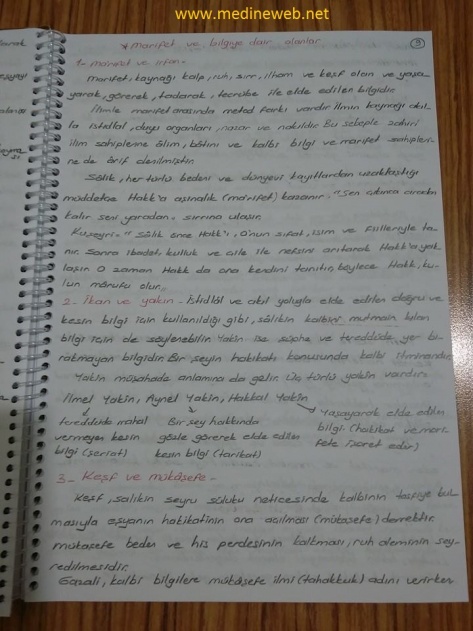 www.medineweb.net
* Marifet ve bilgiye dair olanlar
9
1- Marifet ve irfan -
Marifet, kaynağı kalp, ruh, sırr, ilham ve keşf olan ve yaşa
yarak, görerek, tadarak, tecrübe ile elde edilen bilgidir.
İlimle marifet arasında metod farkı vardır. İlmin kaynağı akıl-
la istidlal, duyu organları, nazar ve nakildir. Bu sebeple zahiri
ilim sahiplerine âlim, bâtıni ve kalbi bilgi ve marifet sahipleri-
ne de ârif denilmiştir.
Sâlik, her türlü bedeni ve dünyevi kayıtlardan uzaklaştığı
müddetçe Hakk'a aşinalık (marifet) kazanır. "Sen çıkınca aradan
kalır seni yaradan" sırrına ulaşır.
Kuşeyri - "Sâlik önce Hakk'ı, O'nun sıfat, isim ve fiilleriyle ta-
nır. Sonra ibadet, kulluk ve çile ile nefsini arıtarak Hakk'a yak
laşır. O zaman Hakk da ona kendini tanıtır, böylece Hakk, ku-
lun mârufu olur.
2- İkan ve yakin - İstidlâl ve akıl yoluyla elde edilen doğru ve
kesin bilgi için kullanıldığı gibi, sâlikin kalbini mutmain kılan
bilgi için de söylenebilir. Yakin ise şüphe ve tereddüde yer bı-
rakmayan bilgidir. Bir şeyin hakikati konusunda kalbi itminandır.
Yakin müşahade anlamına da gelir. Üç türlü yakin vardır.
İlmel Yakin, Aynel Yakin, Hakkal Yakin
tereddüde mahal
vermeyen kesin
bilgi (şeriat)
Bir şey hakkında
gözle görerek elde edilen
kesin bilgi (tarikat)
Yaşayarak elde edilen
bilgi. (hakikat ve mari-
fete işaret eder)
3- Keşf ve mükâşefe -
Keşf, salikin seyru süluku neticesinde kalbinin tasfiye bul-
masıyla eşyanın hakikatinin ona açılması (mükaşefe) demektir.
mükaşefe beden ve his perdesinin kalkması, ruh aleminin sey-
redilmesidir.
Gazali, kalbi bilgilere mükâşefe ilmi (tahakkuk) adını verirken